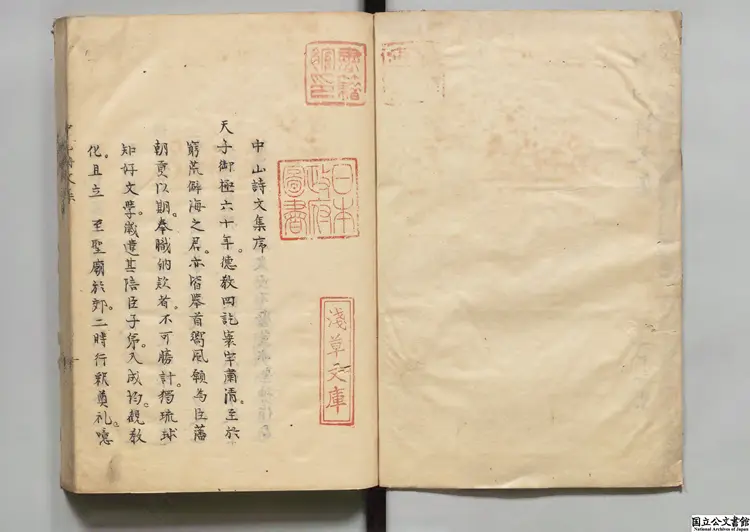 中山詩文集序
天子御極六十年。德教四訖。寰宇肅清。至於
窮荒僻海之君。亦皆舉首嚮風。願為臣藩
朝貢以期。奉職納欵者。不可勝計。獨琉球
知好文學。歲遣其陪臣子弟。入成均。觀教
化。且立 至聖廟於郊。二時行釋奠礼。噫
書籍館印
日本政府圖書
淺草文庫
国立公文書館
National Archives of Japan